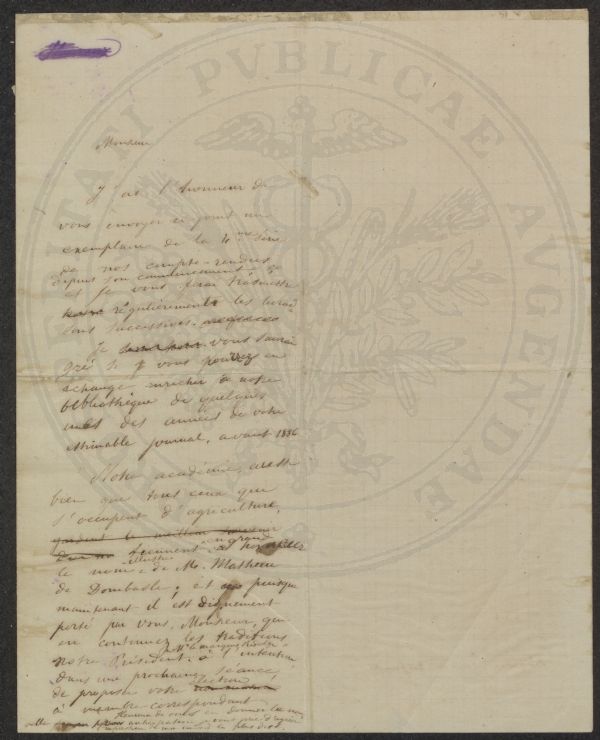 PVBLICAE
Monsieur
J'ai l'honneur de
vous envoyer ci-joint un
exemplaire de la 4me Série
de nos compte-rendus
depuis son commencement
et je vous ferai transmettre
régulièrement les livrai
sons successives.
Je vous saurai
gré si vous pouvez en
échange enrichir notre
bibliothèque de quelques
unes des années de votre
estimable journal, avant 1886
Notre académie, aussi
bien que tous ceux que
s'occupent d'agriculture,
gardent le meilleur souvenir
tiennent en grand
le nom illustre de M. Mathieu
de Dombasle; et puisque
maintenant il est dignement
porté par vous, Monsieur, qui
en continuez les traditions
notre Président, M. le marquis à l'intention
dans une prochaine séance
de propose votre élection
à membre-correspondant.